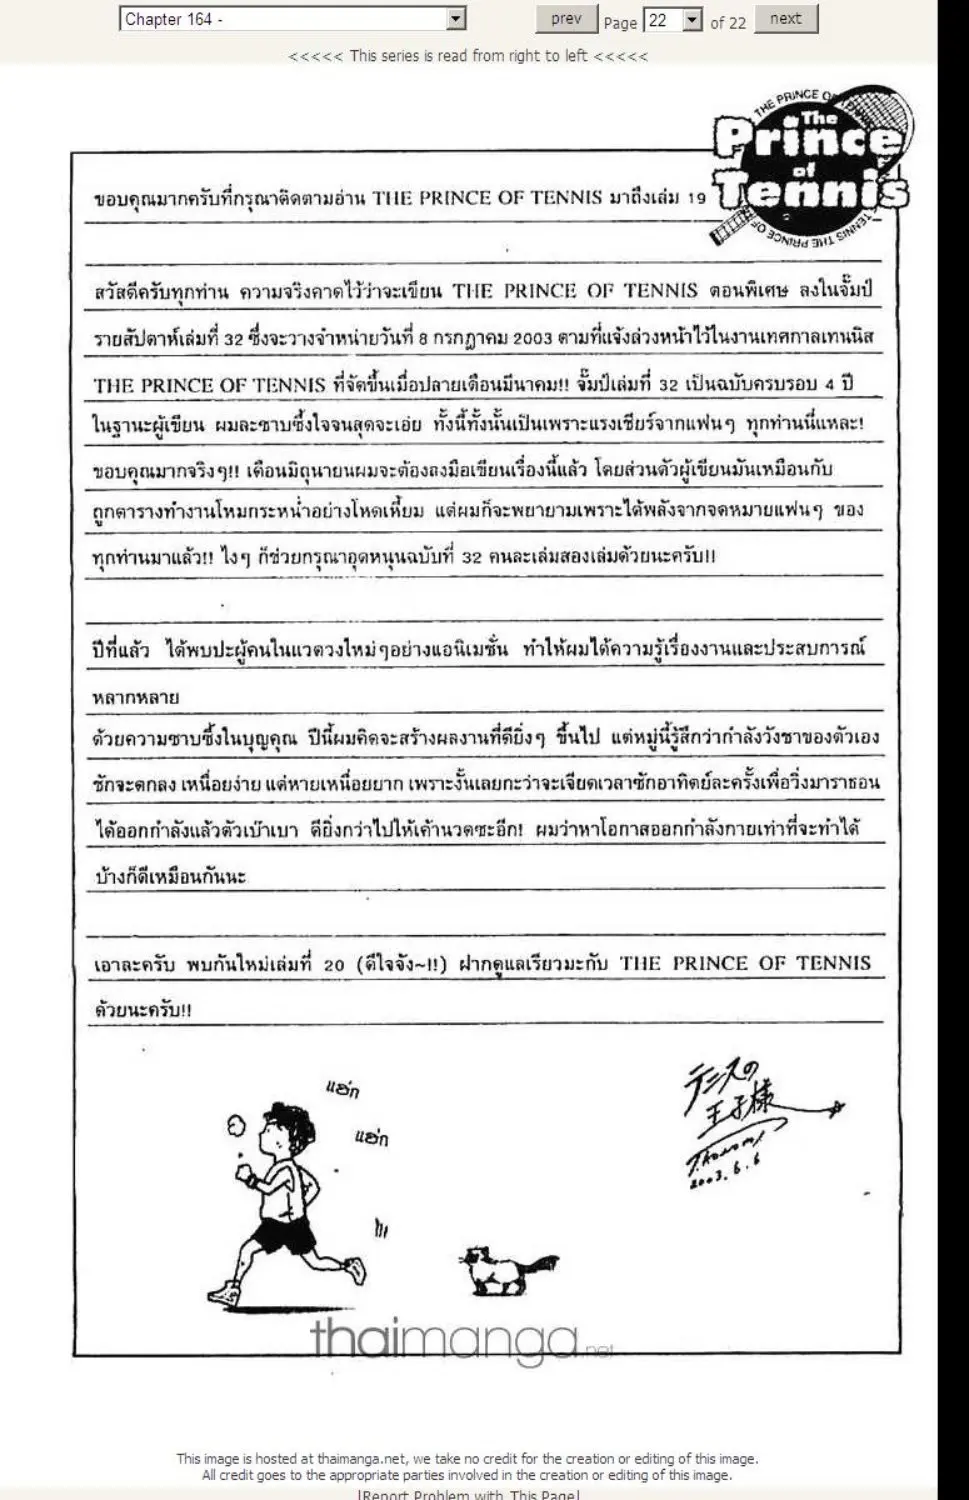 Chapter 164 -
prev Page 22 of 22 next
<<<<< This series is read from right to left <<<<<
THE PRINCE OF
The
Prince
of
Tennis
ขอบคุณมากครับที่กรุณาติดตามอ่าน THE PRINCE OF TENNIS มาถึงเล่ม 19
สวัสดีครับทุกท่าน ความจริงคาดไว้ว่าจะเขียน THE PRINCE OF TENNIS ตอนพิเศษ ลงในจั๊มป์
รายสัปดาห์เล่มที่ 32 ซึ่งจะวางจำหน่ายวันที่ 8 กรกฎาคม 2003 ตามที่แจ้งล่วงหน้าไว้ในงานเทศกาลเทนนิส
THE PRINCE OF TENNIS ที่จัดขึ้นเมื่อปลายเดือนมีนาคม!! จั๊มป์เล่มที่ 32 เป็นฉบับครบรอบ 4 ปี
ในฐานะผู้เขียน ผมละซาบซึ้งใจจนสุดจะเอ่ย ทั้งนี้ทั้งนั้นเป็นเพราะแรงเชียร์จากแฟนๆ ทุกท่านนี่แหละ!
ขอบคุณมากจริงๆ!! เดือนมิถุนายนผมจะต้องลงมือเขียนเรื่องนี้แล้ว โดยส่วนตัวผู้เขียนมันเหมือนกับ
ถูกตารางทำงานโหมกระหน่ำอย่างโหดเหี้ยม แต่ผมก็จะพยายามเพราะได้พลังจากจดหมายแฟนๆ ของ
ทุกท่านมาแล้ว!! ไงๆ ก็ช่วยกรุณาอุดหนุนฉบับที่ 32 คนละเล่มสองเล่มด้วยนะครับ!!
ปีที่แล้ว ได้พบปะผู้คนในแวดวงใหม่ๆอย่างแอนิเมชั่น ทำให้ผมได้ความรู้เรื่องงานและประสบการณ์
หลากหลาย
ด้วยความซาบซึ้งในบุญคุณ ปีนี้ผมคิดจะสร้างผลงานที่ดียิ่งๆ ขึ้นไป แต่หมู่นี้รู้สึกว่ากำลังวังชาของตัวเอง
ชักจะตกลง เหนื่อยง่าย แต่หายเหนื่อยยาก เพราะงั้นเลยกะว่าจะเจียดเวลาซักอาทิตย์ละครั้งเพื่อวิ่งมาราธอน
ได้ออกกำลังแล้วตัวเบ๊าเบา ดียิ่งกว่าไปให้เค้านวดซะอีก! ผมว่าหาโอกาสออกกำลังกายเท่าที่จะทำได้
บ้างก็ดีเหมือนกันนะ
เอาละครับ พบกันใหม่เล่มที่ 20 (ดีใจจัง~!!) ฝากดูแลเรียวมะกับ THE PRINCE OF TENNIS
ด้วยนะครับ!!
แฮ่ก
แฮ่ก
テニスの
王子様
T.Konomi
2003.6.6
thaimanga.net
This image is hosted at thaimanga.net, we take no credit for the creation or editing of this image.
All credit goes to the appropriate parties involved in the creation or editing of this image.
[Report Problem with This Page]